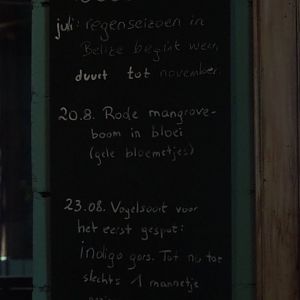 juli: regenseizoen in
Belize begint weer,
duurt tot november.
20.8. Rode mangrove-
boom in bloei
(gele bloemetjes)
23.08. Vogelsoort voor
het eerst gespot:
indigo gors. Tot nu toe
slechts 1 mannetje